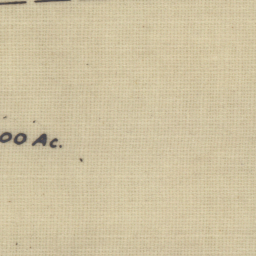 00 Ac.